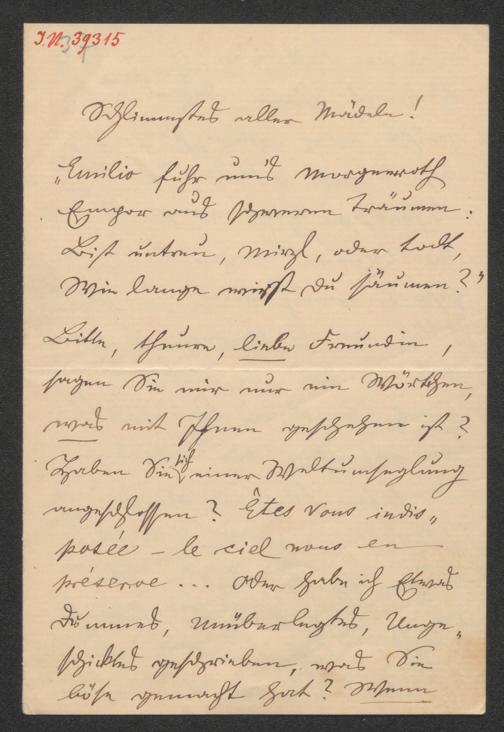 I.N. 39315
Schlimmstes aller Mädeln!
„Emilio fuhr um's Morgenroth
Empor aus schweren Träumen:
Bist untreu, Mirzl, oder todt,
Wie lange wirst Du säumen?"
Bitte, theure, liebe Freundin,
sagen Sie mir nur ein Wörtchen,
was mit Ihnen geschehen ist?
Haben Sie sich einer Weltumseglung
angeschlossen? Êtes vous indis„
posée – le ciel nous en
préserve ... Oder habe ich Etwas
Dummes, Unüberlegtes, Unge„
schicktes geschrieben, was Sie
böse gemacht hat? Wenn